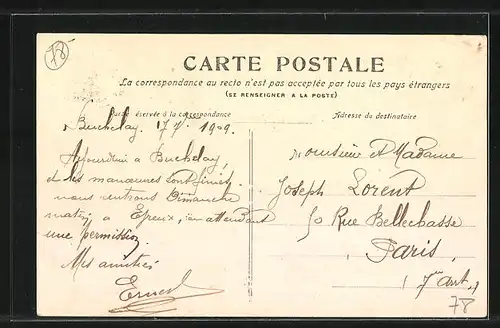 78
CARTE POSTALE
La correspondance au recto n'est pas acceptée par tous les pays étrangers
(SE RENSEIGNER A LA POSTE)
Partie réservée à la correspondance
Adresse du destinataire
Buchelay. 17 7. 1909.
Aujourd'hui a Buchelay,
et les manœuvres sont finies
nous rentrons Dimanche
matin a Evreux, en attendant
une permission
Mes amitiés
Ernest
Monsieur et Madame
Joseph Lorent
50 Rue Bellechasse
Paris
7me
78